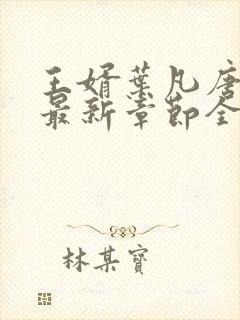 王婿葉凡唐
最新章節全
林某寶